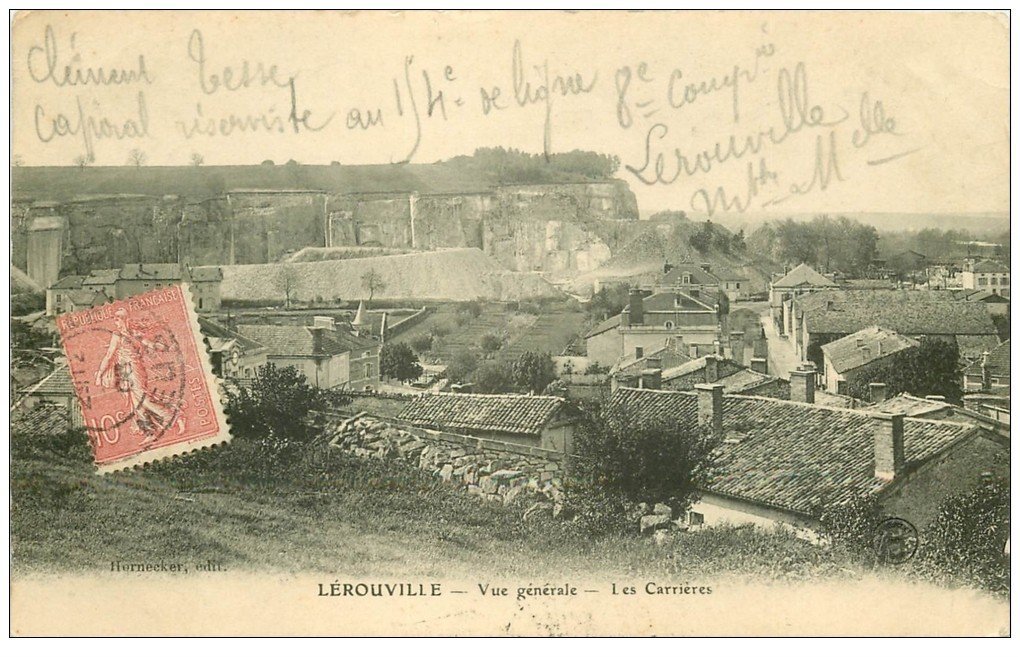 Clément Tesse
caporal réserviste au 154e de ligne 8e Compie
Lerouville
Mthe Melle
RÉPUBLIQUE FRANÇAISE
10c
POSTES
MEUSE
Hornecker, edit.
B
LÉROUVILLE — Vue générale — Les Carrières